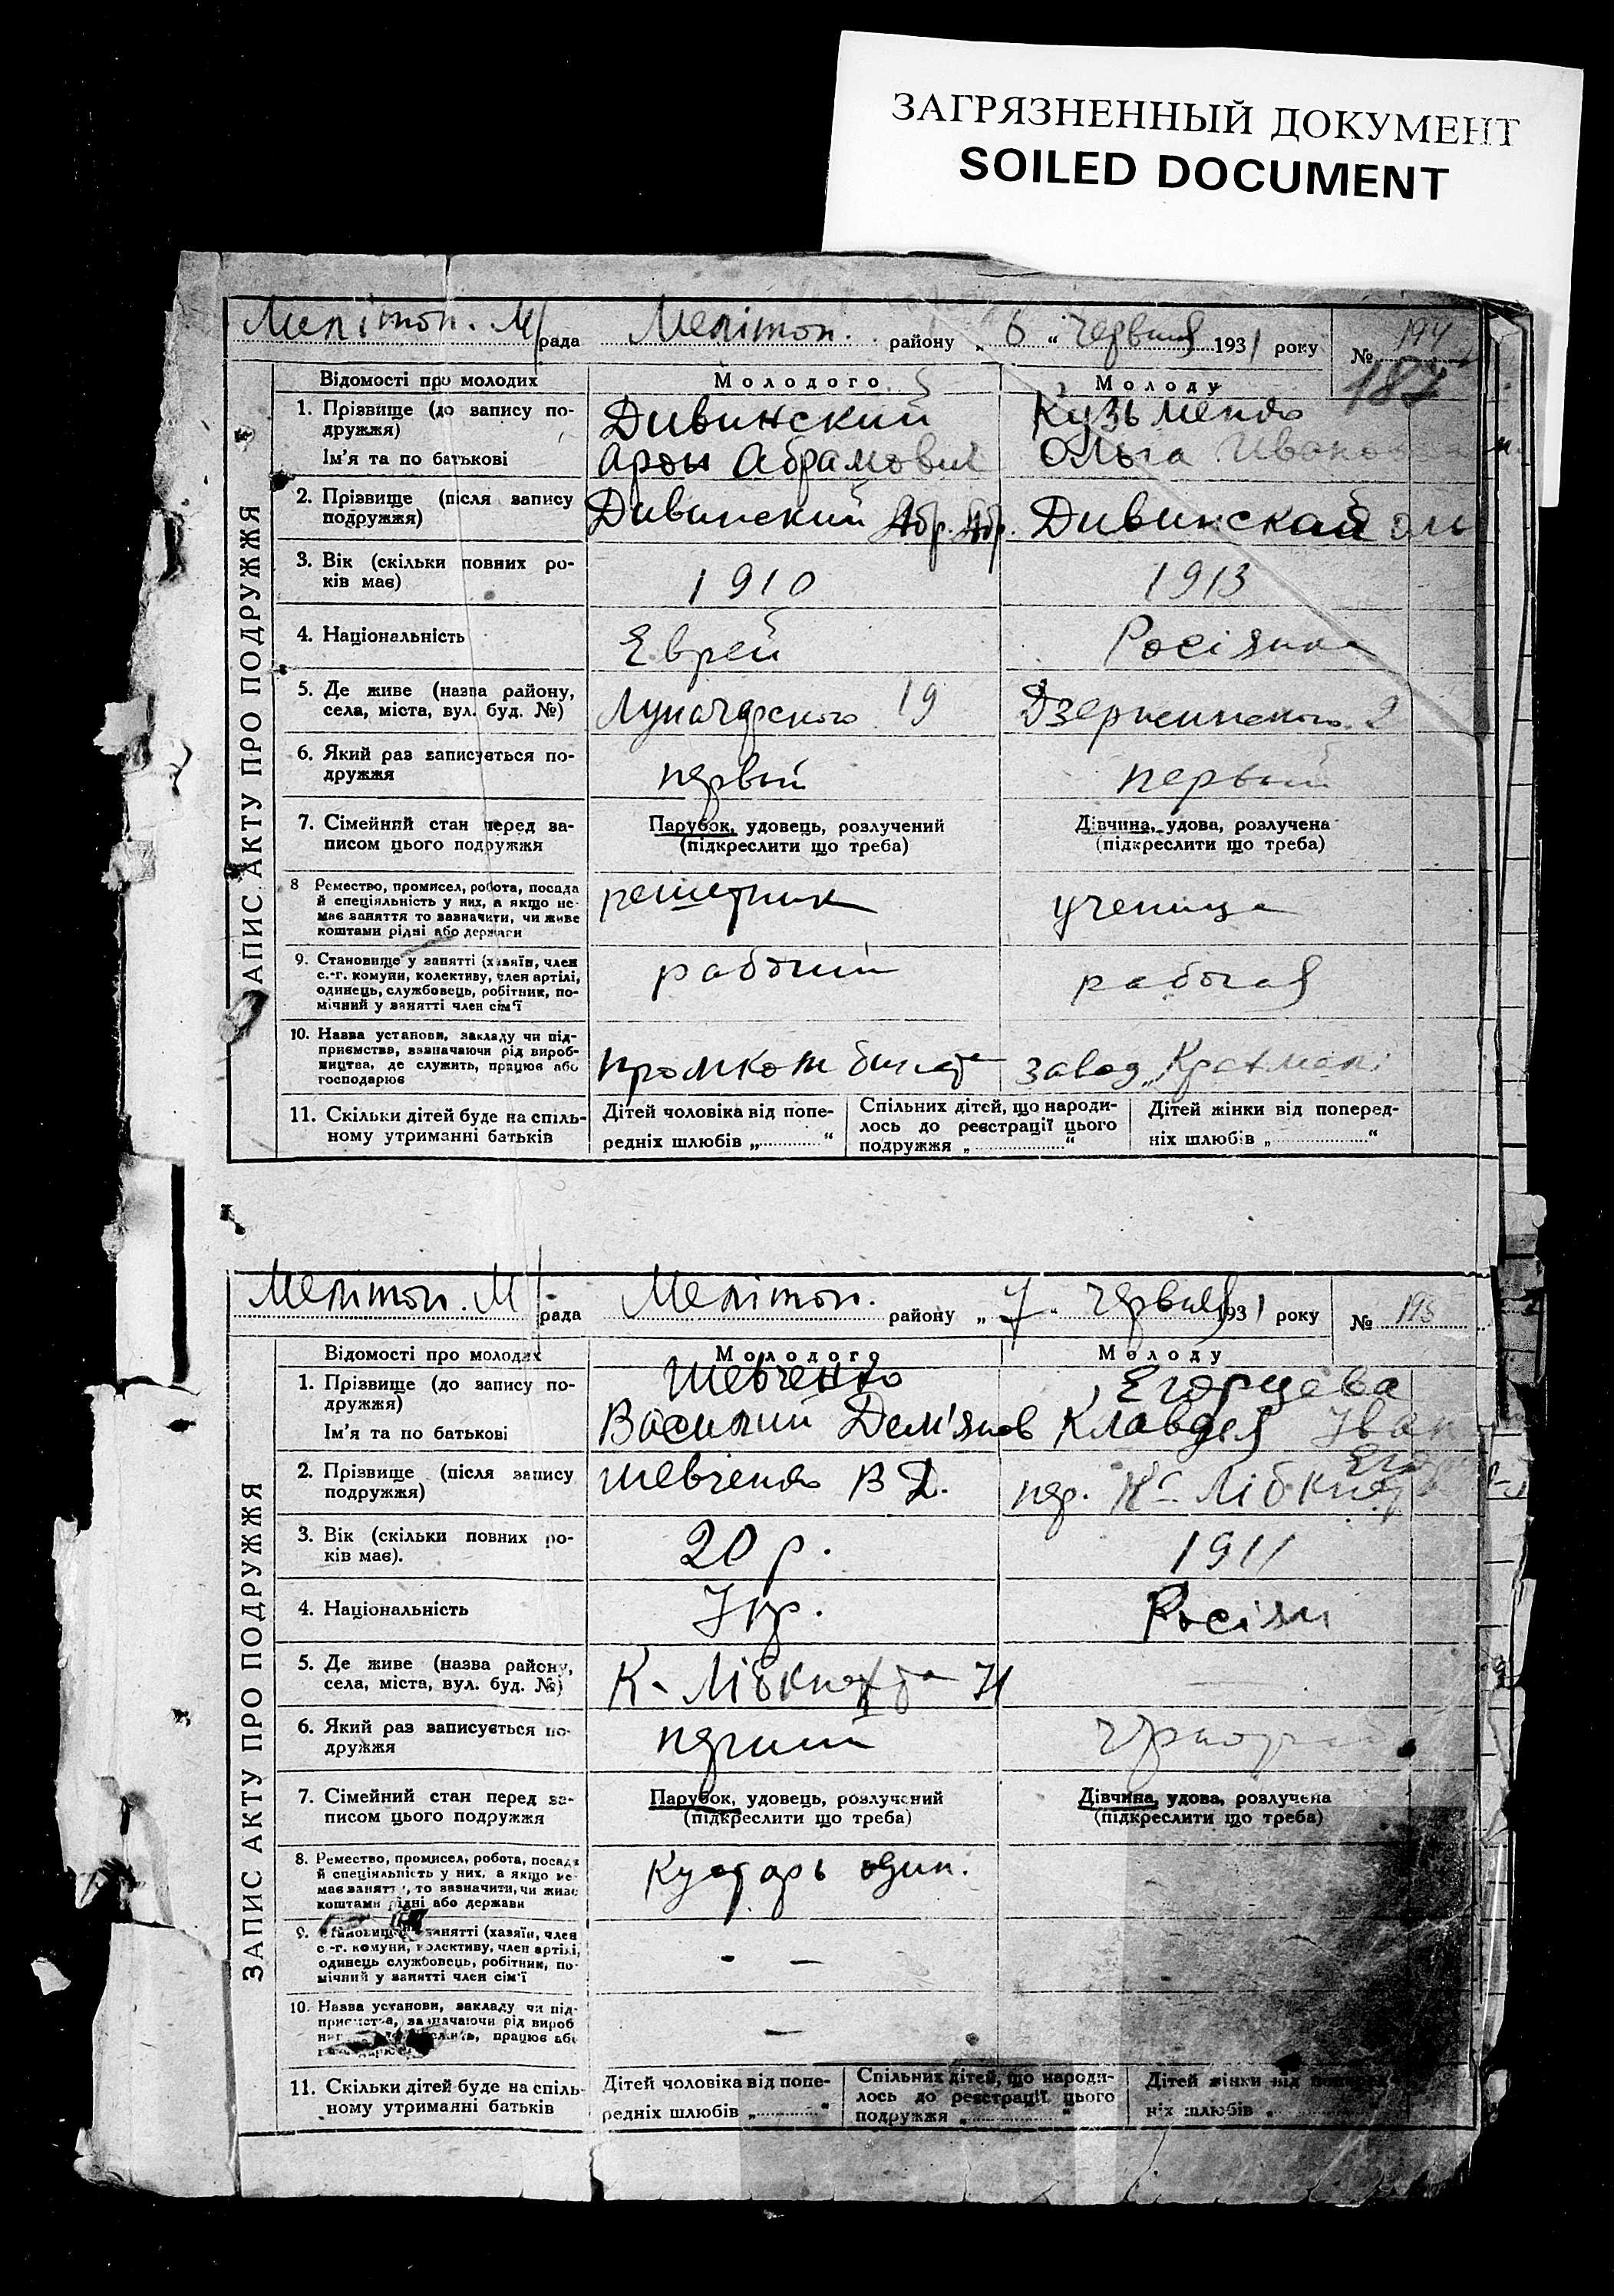 ЗАГРЯЗНЕННЫЙ ДОКУМЕНТ
SOILED DOCUMENT
Мелітоп. М/рада Мелітоп. району „6“ червня 1931 року № 194
187
ЗАПИС АКТУ ПРО ПОДРУЖЖЯ
Відомості про молодих
Молодого
Молоду
1. Прізвище (до запису по-
дружжя)
Ім'я та по батькові
Дивинский
Арон Абрамович
Кузьменко
Ольга Иванов
2. Прізвище (після запису
подружжя)
Дивинский Абр. Абр.
Дивинская Оль
3. Вік (скільки повних ро-
ків має)
1910
1913
4. Національність
Еврей
Росіянка
5. Де живе (назва району,
села, міста, вул. буд. №)
Луначарского 19
Дзержинского 2
6. Який раз записується по-
дружжя
первый
первый
7. Сімейний стан перед за-
писом цього подружжя
Парубок, удовець, розлучений
(підкреслити що треба)
Дівчина, удова, розлучена
(підкреслити що треба)
8 Ремество, промисел, робота, посада
й спеціяльність у них, а якщо не-
має заняття то зазначити, чи живе
коштами рідні або держави
решетник
ученица
9. Становище у занятті (хазяїн, член
с.-г. комуни, колективу, член артілі,
одинець, службовець, робітник, по-
мічний у занятті член сім'ї
рабочий
рабочая
10. Назва установи, закладу чи під-
приємства, зазначаючи рід вироб-
ництва, де служить, працює або
господарює
завод
11. Скільки дітей буде на спіль-
ному утриманні батьків
Дітей чоловіка від попе-
редніх шлюбів „............“
Спільних дітей, що народи-
лось до реєстрації цього
подружжя „............“
Дітей жінки від поперед-
ніх шлюбів „............“
Мелітоп. М/рада Мелітоп. району „7“ червня 1931 року № 195
ЗАПИС АКТУ ПРО ПОДРУЖЖЯ
Відомості про молодих
Молодого
Молоду
1. Прізвище (до запису по-
дружжя)
Ім'я та по батькові
Шевченко
Василий Дем'янов
Егорцева
Клавдея Іван
2. Прізвище (після запису
подружжя)
Шевченко В Д.
Егор
пер. К. Лібкнехта
3. Вік (скільки повних ро-
ків має).
20 р.
1911
4. Національність
Укр.
Росіян
5. Де живе (назва району,
села, міста, вул. буд. №)
К. Лібкнехта
6. Який раз записується по-
дружжя
перший
7. Сімейний стан перед за-
писом цього подружжя
Парубок, удовець, розлучений
(підкреслити що треба)
Дівчина, удова, розлучена
(підкреслити що треба)
8. Ремество, промисел, робота, посада
й спеціяльність у них, а якщо не-
має заняття, то зазначити, чи живе
коштами рідні або держави
Кустарь один.
9. Становище у занятті (хазяїн, член
с.-г. комуни, колективу, член артілі,
одинець службовець, робітник, по-
мічний у занятті член сім'ї
- -
10. Назва установи, закладу чи під-
приємства, зазначаючи рід вироб
служить, працює або
—
11. Скільки дітей буде на спіль-
ному утриманні батьків
Дітей чоловіка від попе-
редніх шлюбів „............“
Спільних дітей, що народи-
лось до реєстрації цього
подружжя „............“
Дітей жінки від
ніх шлюбів „